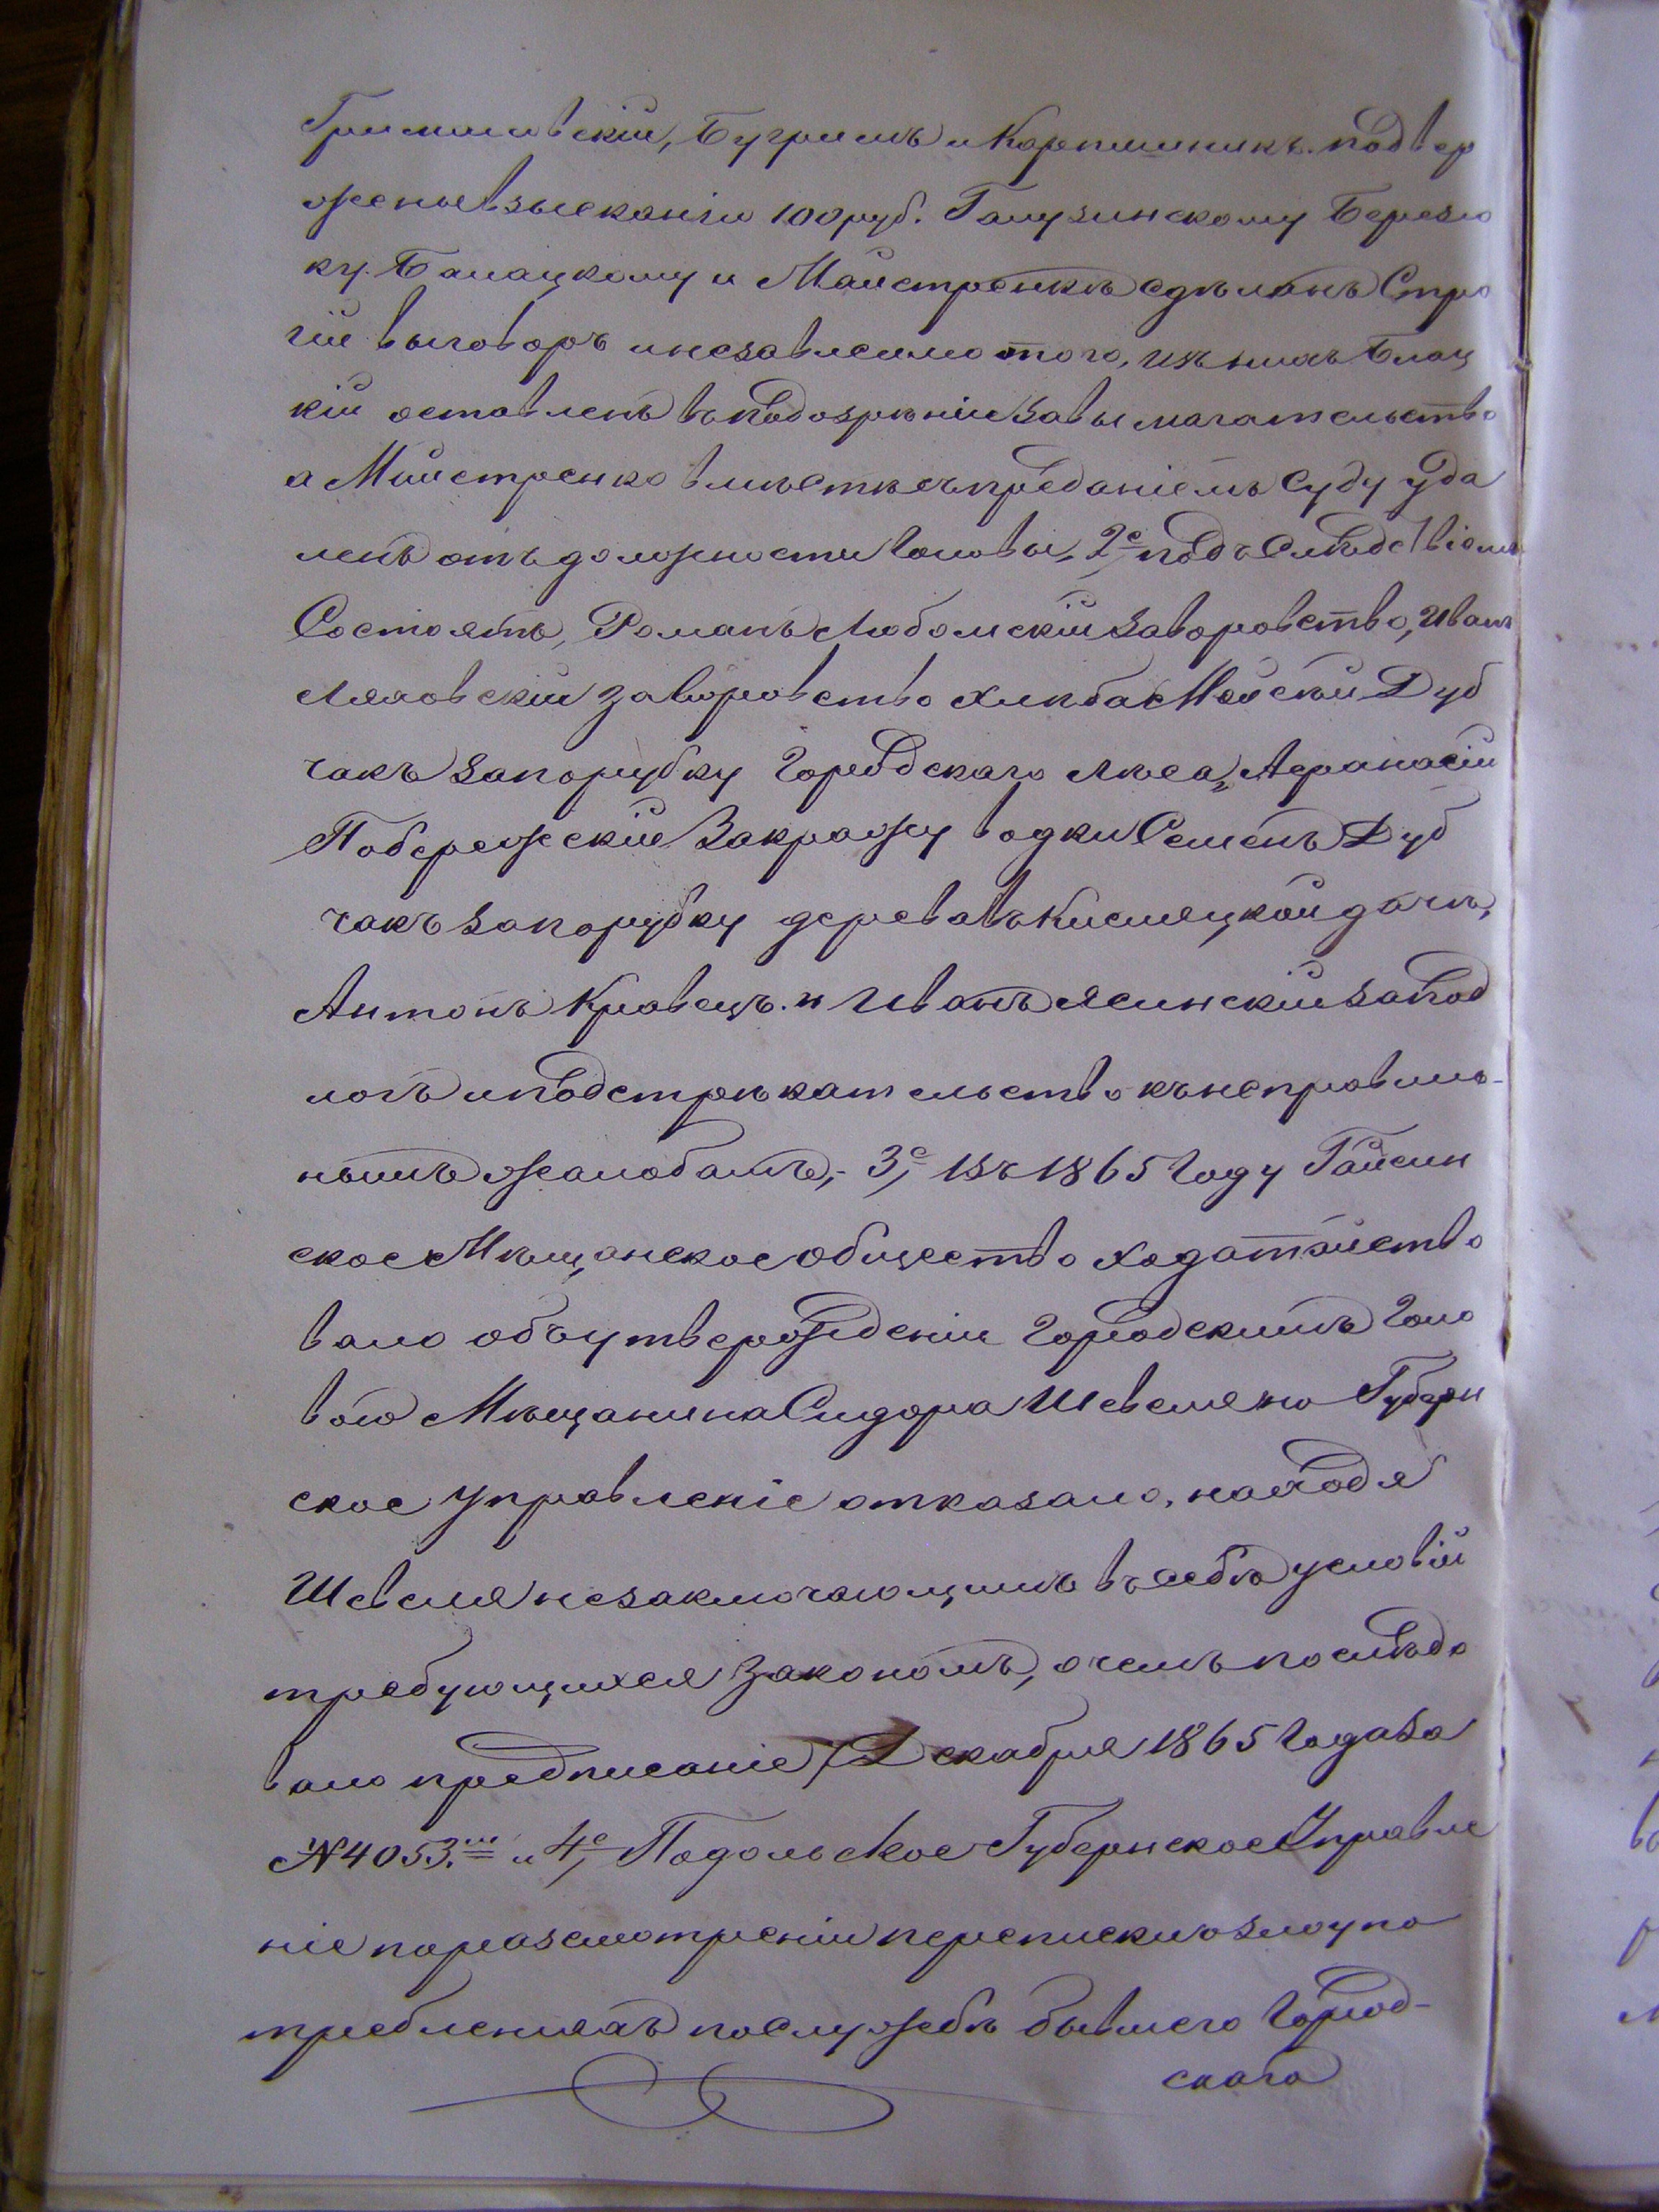 Гримиловскій, Бугримъ и Карпишникъ. подвер
жены взысканію 100 руб. Галузинскому Березю
ку. Балацкому и Майстренкѣ сдѣланъ Стро
гій выговоръ и независимо того, изъ нихъ Блац
кій оставленъ въ подозрѣніи за вымагательство
а Мийстренко вмѣстѣ съ преданіемъ Суду уда
ленъ отъ должности Головы, 2е подъ Слѣдствіемъ
Состоятъ, Романъ Любомскій за воровство, Иванъ
Ляховскій за воровство хлѣба Мойсей Дуб
чакъ за порубку Городскаго лѣса, Афанасій
Побережскій За кражу водки Семенъ Дуб
чакъ за порубку дерева въ Кисляцкой дачѣ,
Антонъ Кравецъ. и Иванъ Ясинскій за под
логъ и подстрѣкательство къ неправиль-
нымъ жалобамъ,- 3е, въ 1865 Году Гайсин
ское Мѣщанское общество ходатайство
вало объ утвержденіи Городскимъ Голо
вою Мѣщанина Сидора Шевеля но Губерн
ское Управленіе отказало, находя
Шевеля незаключающимъ въ себѣ условій
требующихся закономъ, о чемъ послѣдо
вало предписаніе 7 Декабря 1865 Года за
№ 4053.мъ и 4е, Подольское Губернское Управле
ніе по разсмотреніи переписки о злоупо
требленіяхъ по Службѣ бывшего Город-
скаго